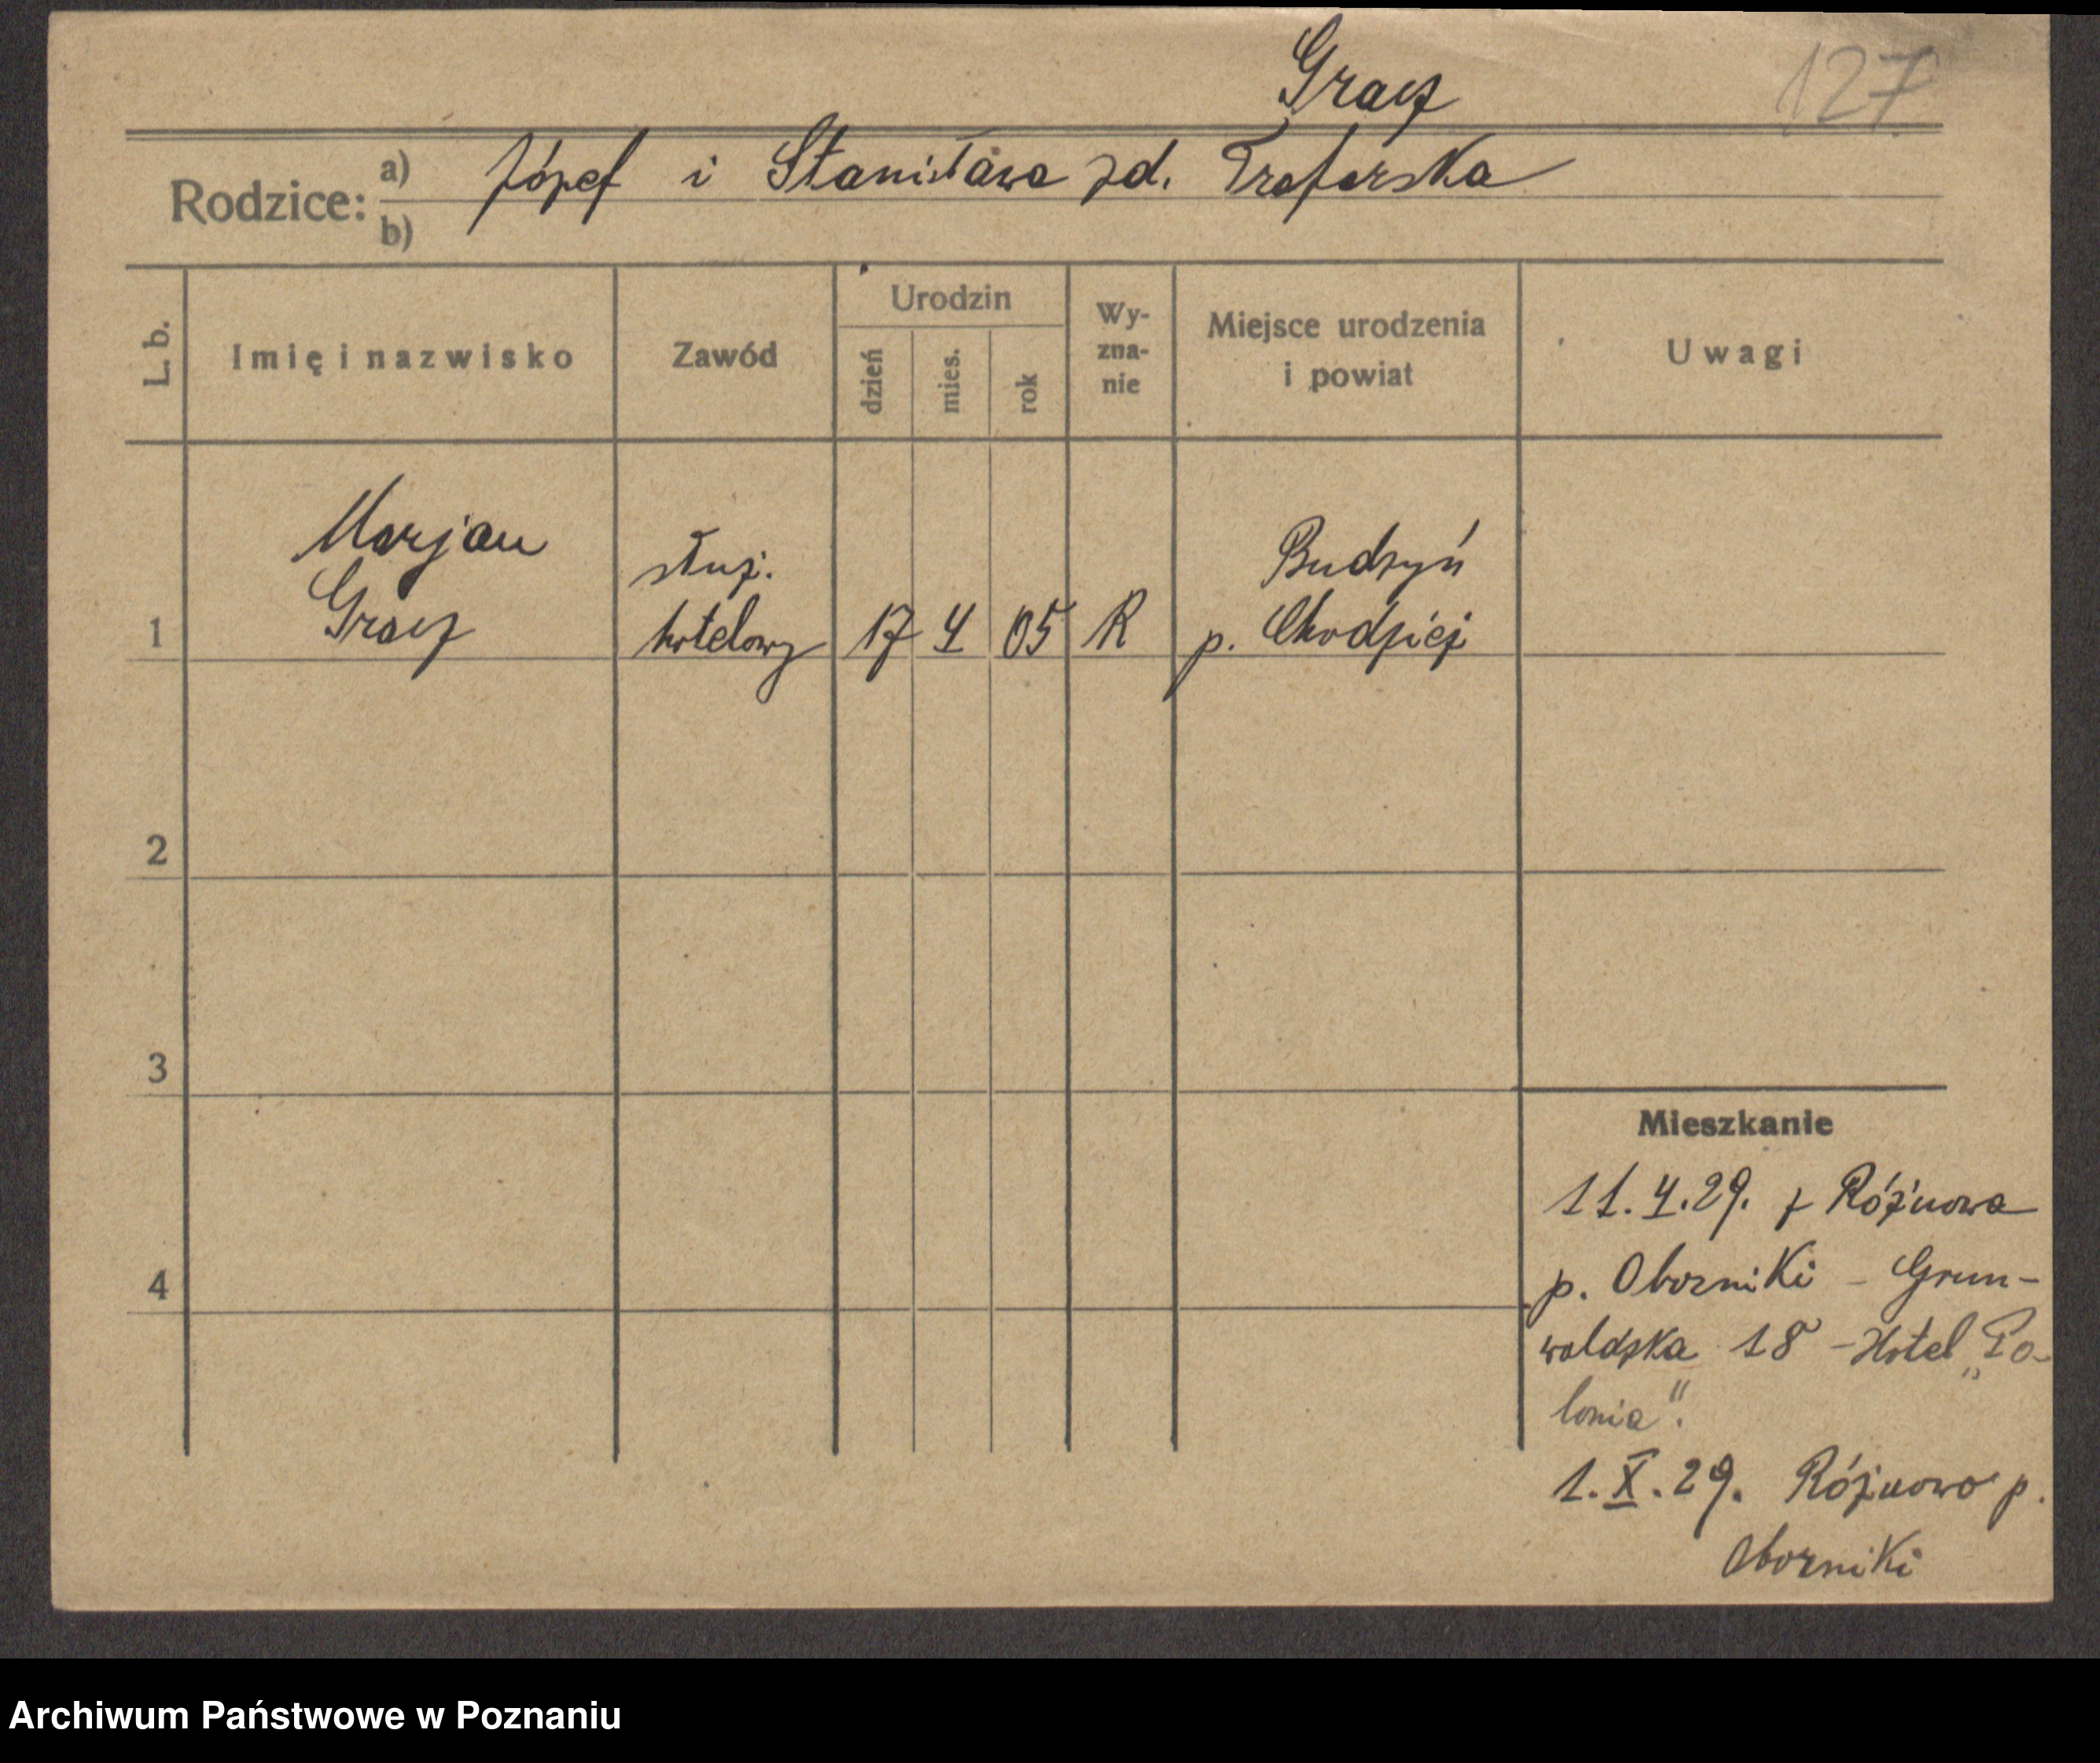 Gracz
127
Rodzice: a) Józef i Stanisława zd. Traforska
b)
L. b.
Imię i nazwisko
Zawód
Urodzin
dzień
mies.
rok
Wy-
zna-
nie
Miejsce urodzenia
i powiat
Uwagi
Marjan
Gracz
służ.
hotelowy
1
17 4 05 R
Budzyń
p. Chodzież
2
3
4
Mieszkanie
11.4.29. z Różnowa
p. Oborniki - Grun-
waldzka 18 - Hotel „Po-
lonia".
1.X.29. Różnowo p.
Oborniki
Archiwum Państwowe w Poznaniu